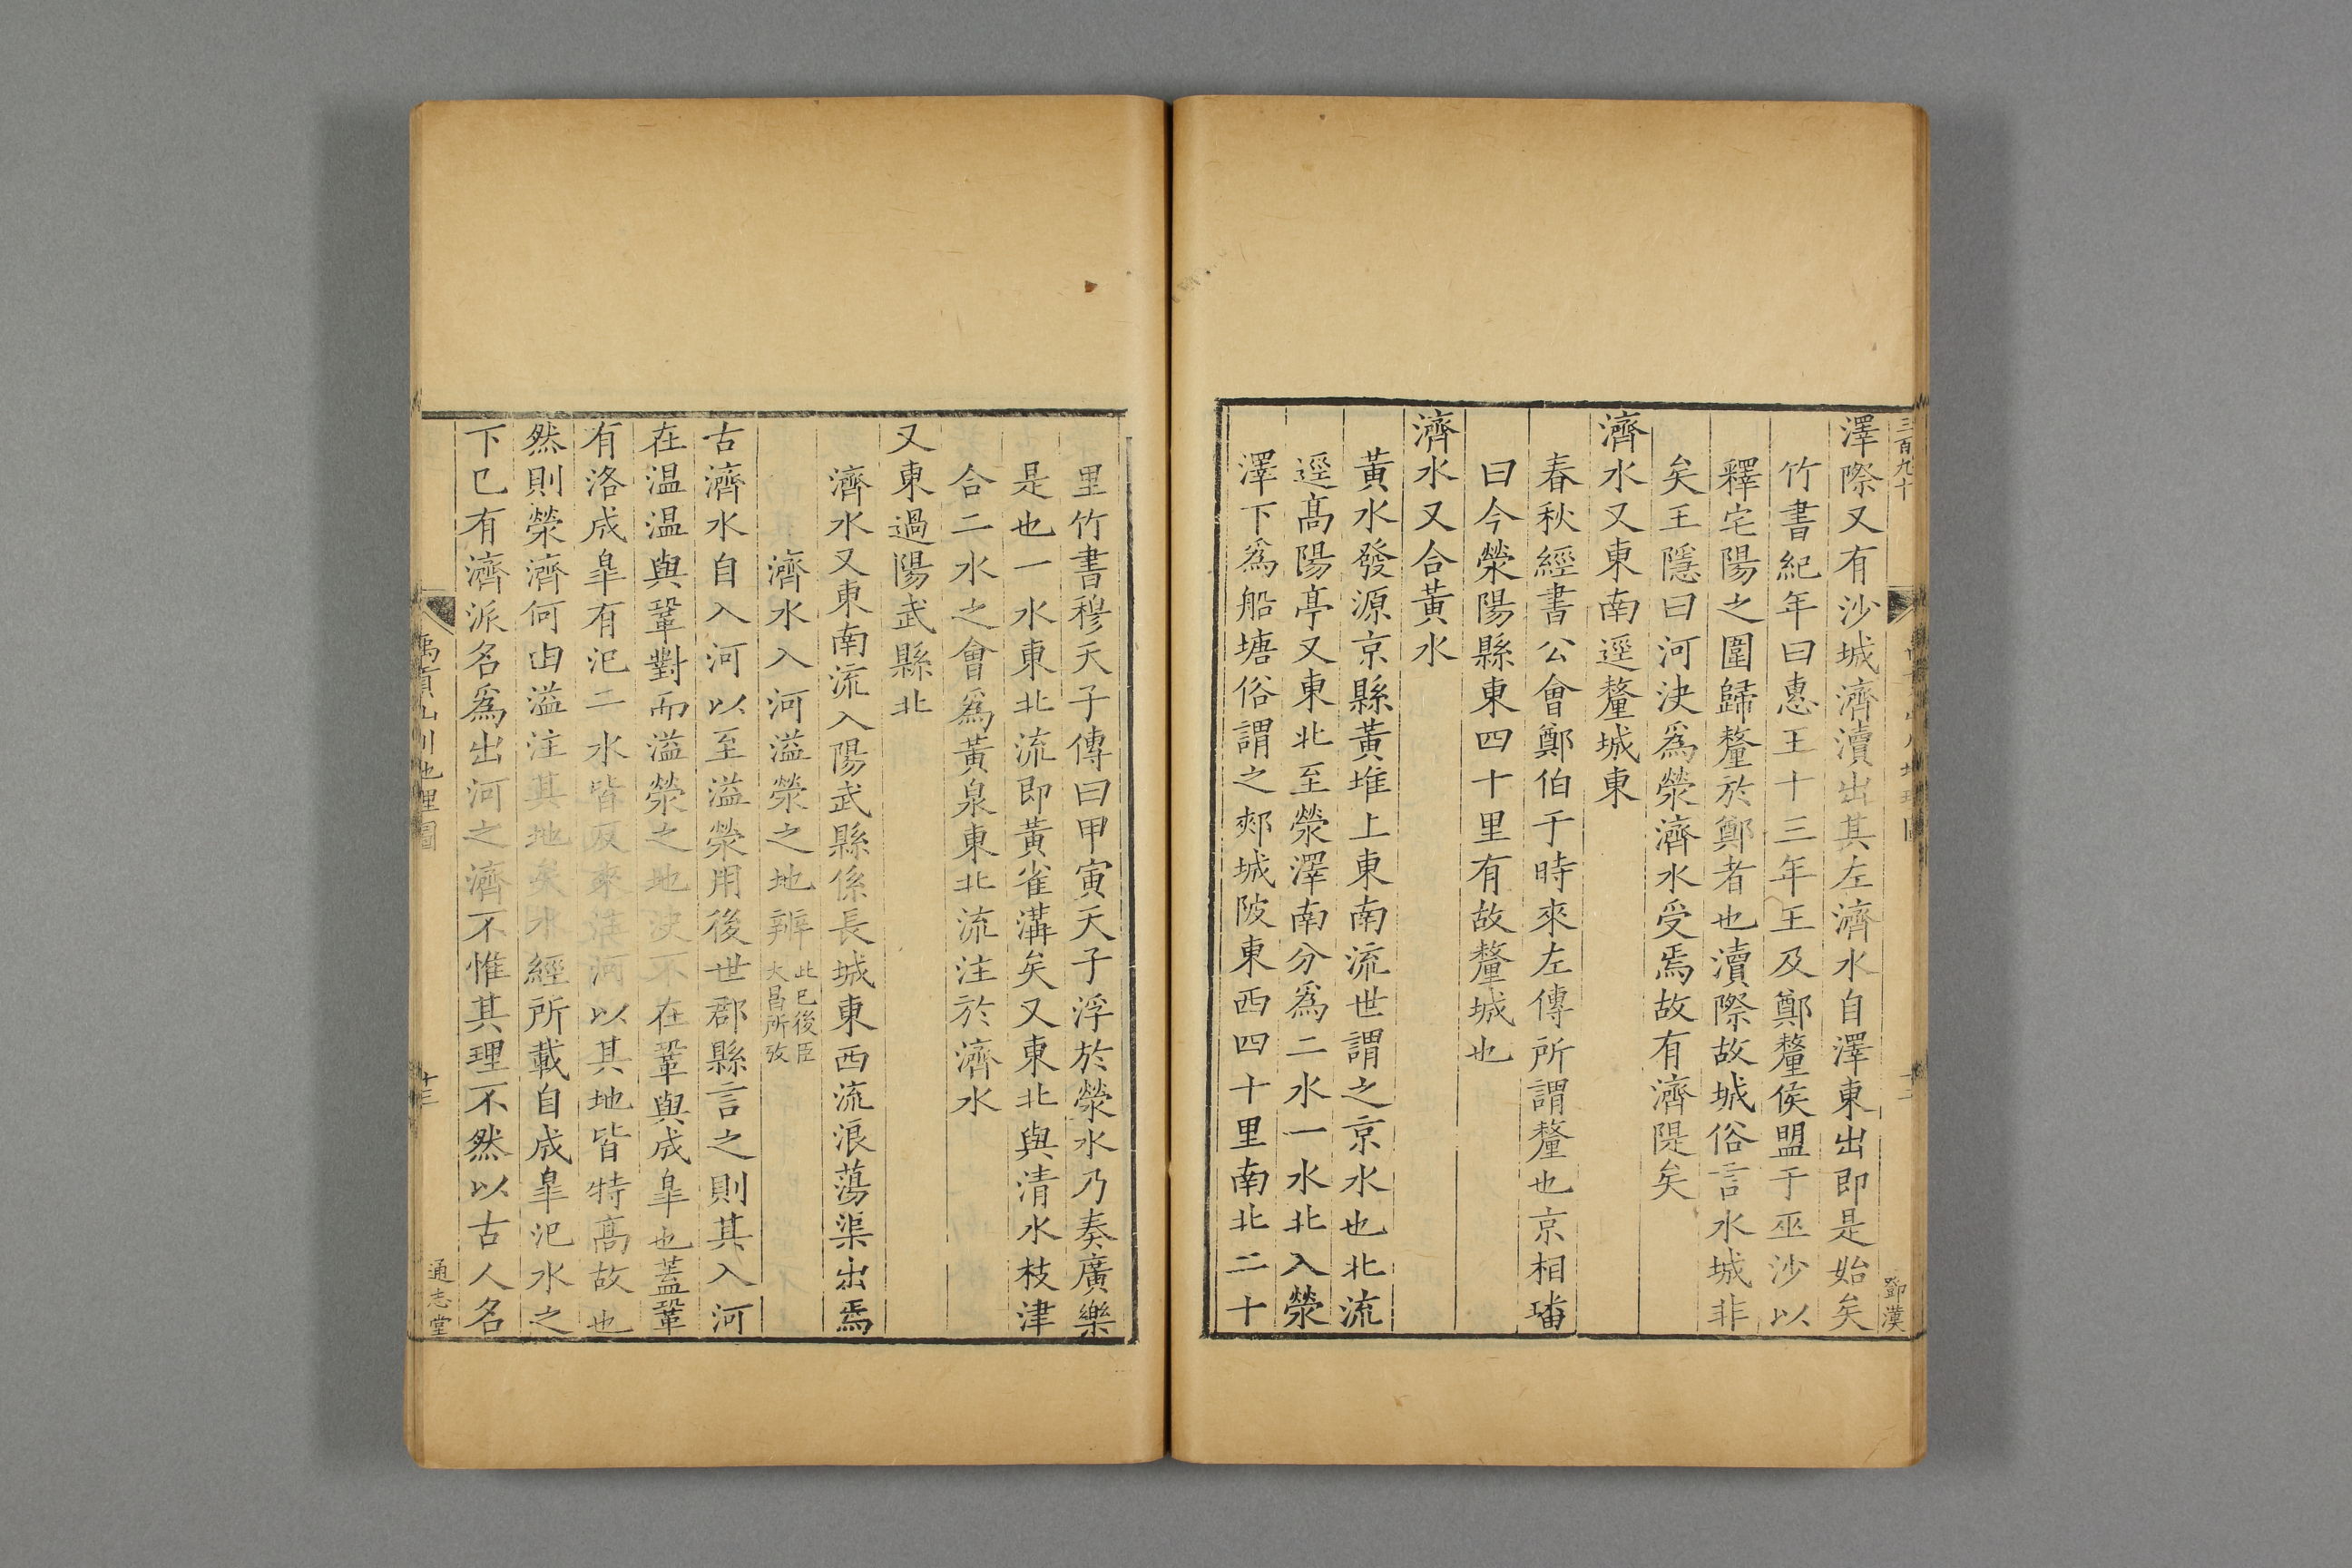 三百九十
鄧漢
澤際又有沙城濟瀆出其左濟水自澤東出即是始矣
竹書紀年曰惠王十三年王及鄭釐侯盟于巫沙以
釋宅陽之圍歸釐於鄭者也瀆際故城俗言水城非
矣王隱曰河決爲滎濟水受焉故有濟隄矣
濟水又東南逕釐城東
春秋經書公會鄭伯于時來左傳所謂釐也京相璠
曰今滎陽縣東四十里有故釐城也
濟水又合黃水
黃水發源京縣黃堆上東南流世謂之京水也北流
逕髙陽亭又東北至滎澤南分爲二水一水北入滎
澤下爲船塘俗謂之郟城陂東西四十里南北二十
里竹書穆天子傳曰甲寅天子浮於滎水乃奏廣樂
是也一水東北流即黃雀溝矣又東北與清水枝津
合二水之會爲黃泉東北流注於濟水
又東過陽武縣北
濟水又東南流入陽武縣係長城東西流浪蕩渠出焉
濟水入河溢滎之地辨
此已後臣
大昌所攷
古濟水自入河以至溢滎用後世郡縣言之則其入河
在温温與鞏對而溢滎之地決不在鞏與成臯也蓋鞏
有洛成臯有汜二水皆從來注河以其地皆特髙故也
然則滎濟何由溢注其地矣水經所載自成臯汜水之
下已有濟派名爲出河之濟不惟其理不然以古人名
禹貢山川地理圖
十三
通志堂